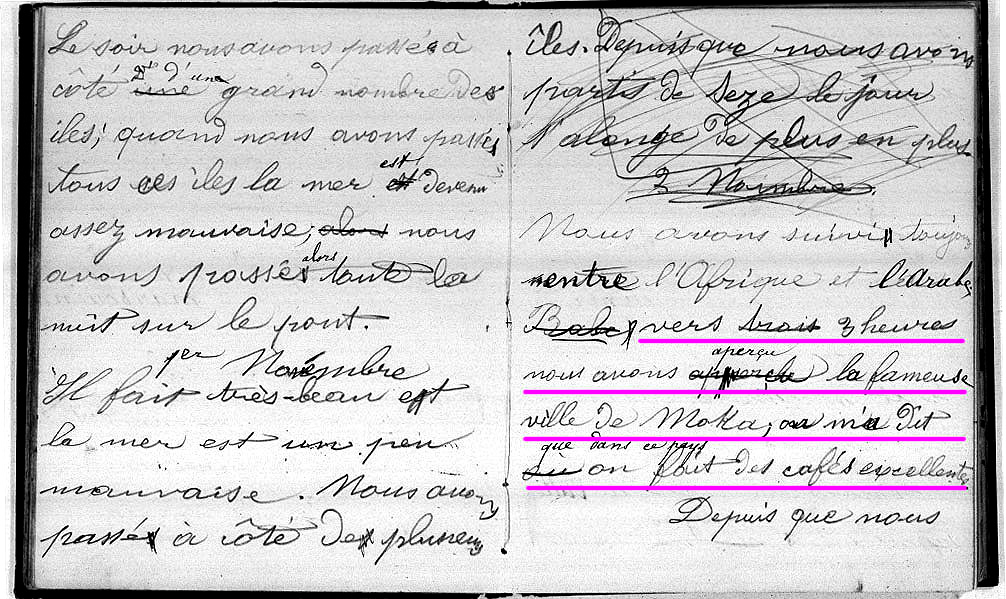 Le soir nous avons passés à
côté une d'une grand nombre des
iles; quand nous avons passés
tous ces iles la mer est devenu
assez mauvaise; alors nous
avons passés alors toute la
nuit sur le pont.
1er Novembre
Il fait très-beau et
la mer est un peu
mauvaise. Nous avons
passés à côté de plusieurs
îles. Depuis que nous avons
partis de Seze le jour
s'alonge de plus en plus
2 Novembre.
Nous avons suivi toujours
entre l'Afrique et l'Arabe
vers trois 3 heures
aperçu
nous avons la fameuse
ville de Moka, on m'a dit
que dans ce pays
on fait des cafés excellentes
Depuis que nous